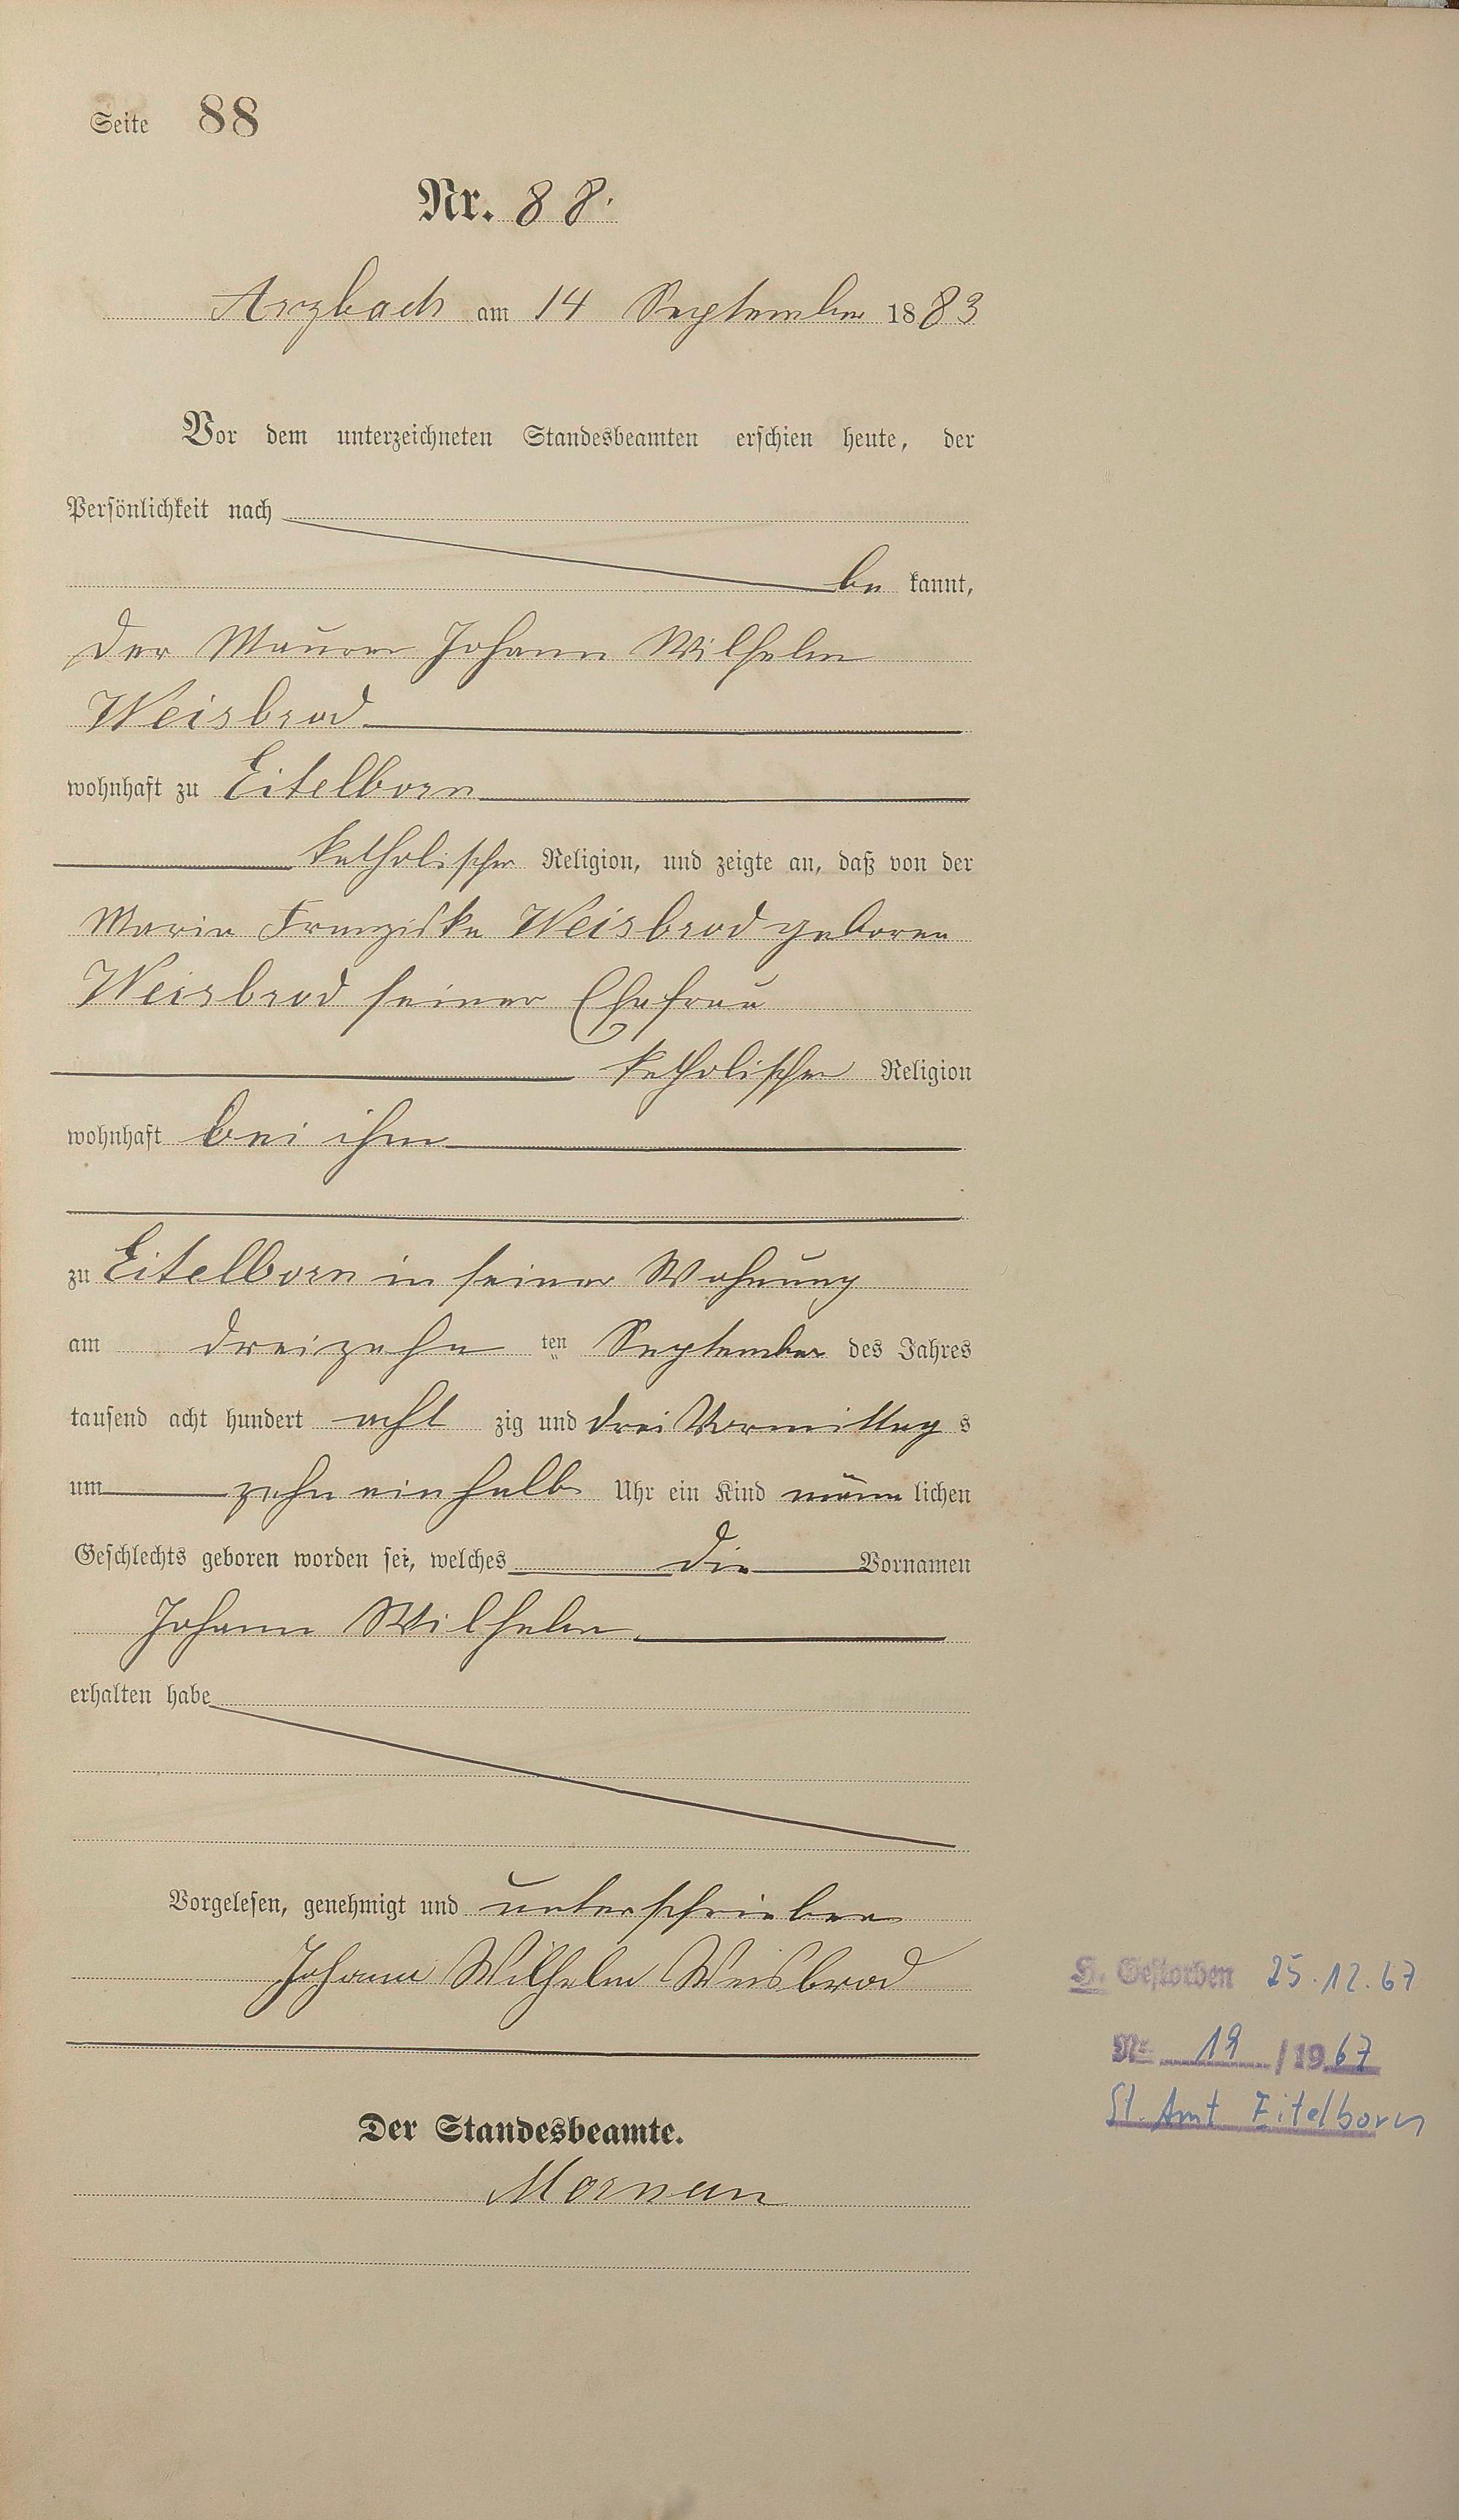 Seite 88
Nr. 88.
Arzbach am 14 September 1883
Vor dem unterzeichneten Standesbeamten erschien heute, der
Persönlichkeit nach
be kannt,
der Maurer Johann Wilhelm
Weisbrod
wohnhaft zu Eitelborn
katholischer Religion, und zeigte an, daß von der
Maria Franziska Weisbrod geboren
Weisbrod seiner Ehefrau
katholischer Religion
wohnhaft bei ihm
zu Eitelborn in seiner Wohnung
am dreizehn ten September des Jahres
tausend acht hundert acht zig und drei Vormittag s
um zehn ein halb Uhr ein Kind männ lichen
Geschlechts geboren worden sei, welches die Vornamen
Johann Wilhelm
erhalten habe
Vorgelesen, genehmigt und unterschrieben
Johann Wilhelm Weisbrod
H. Gestorben 25.12.67
Nr. 19 / 1967
St. Amt Eitelborn
Der Standesbeamte.